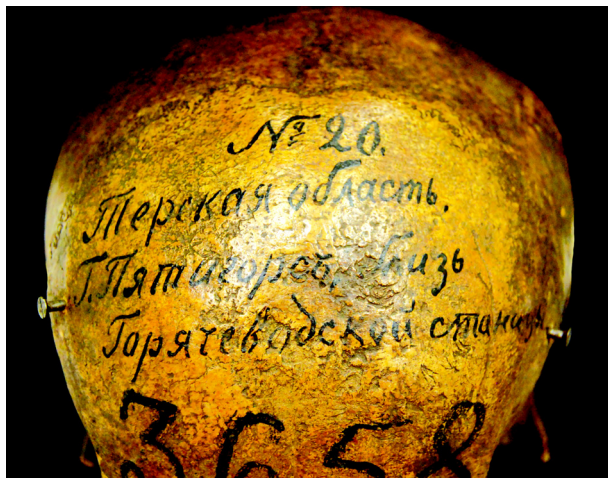 № 20.
Терская область,
Г. Пятигорскъ, близь
Горячеводской станицы
3658